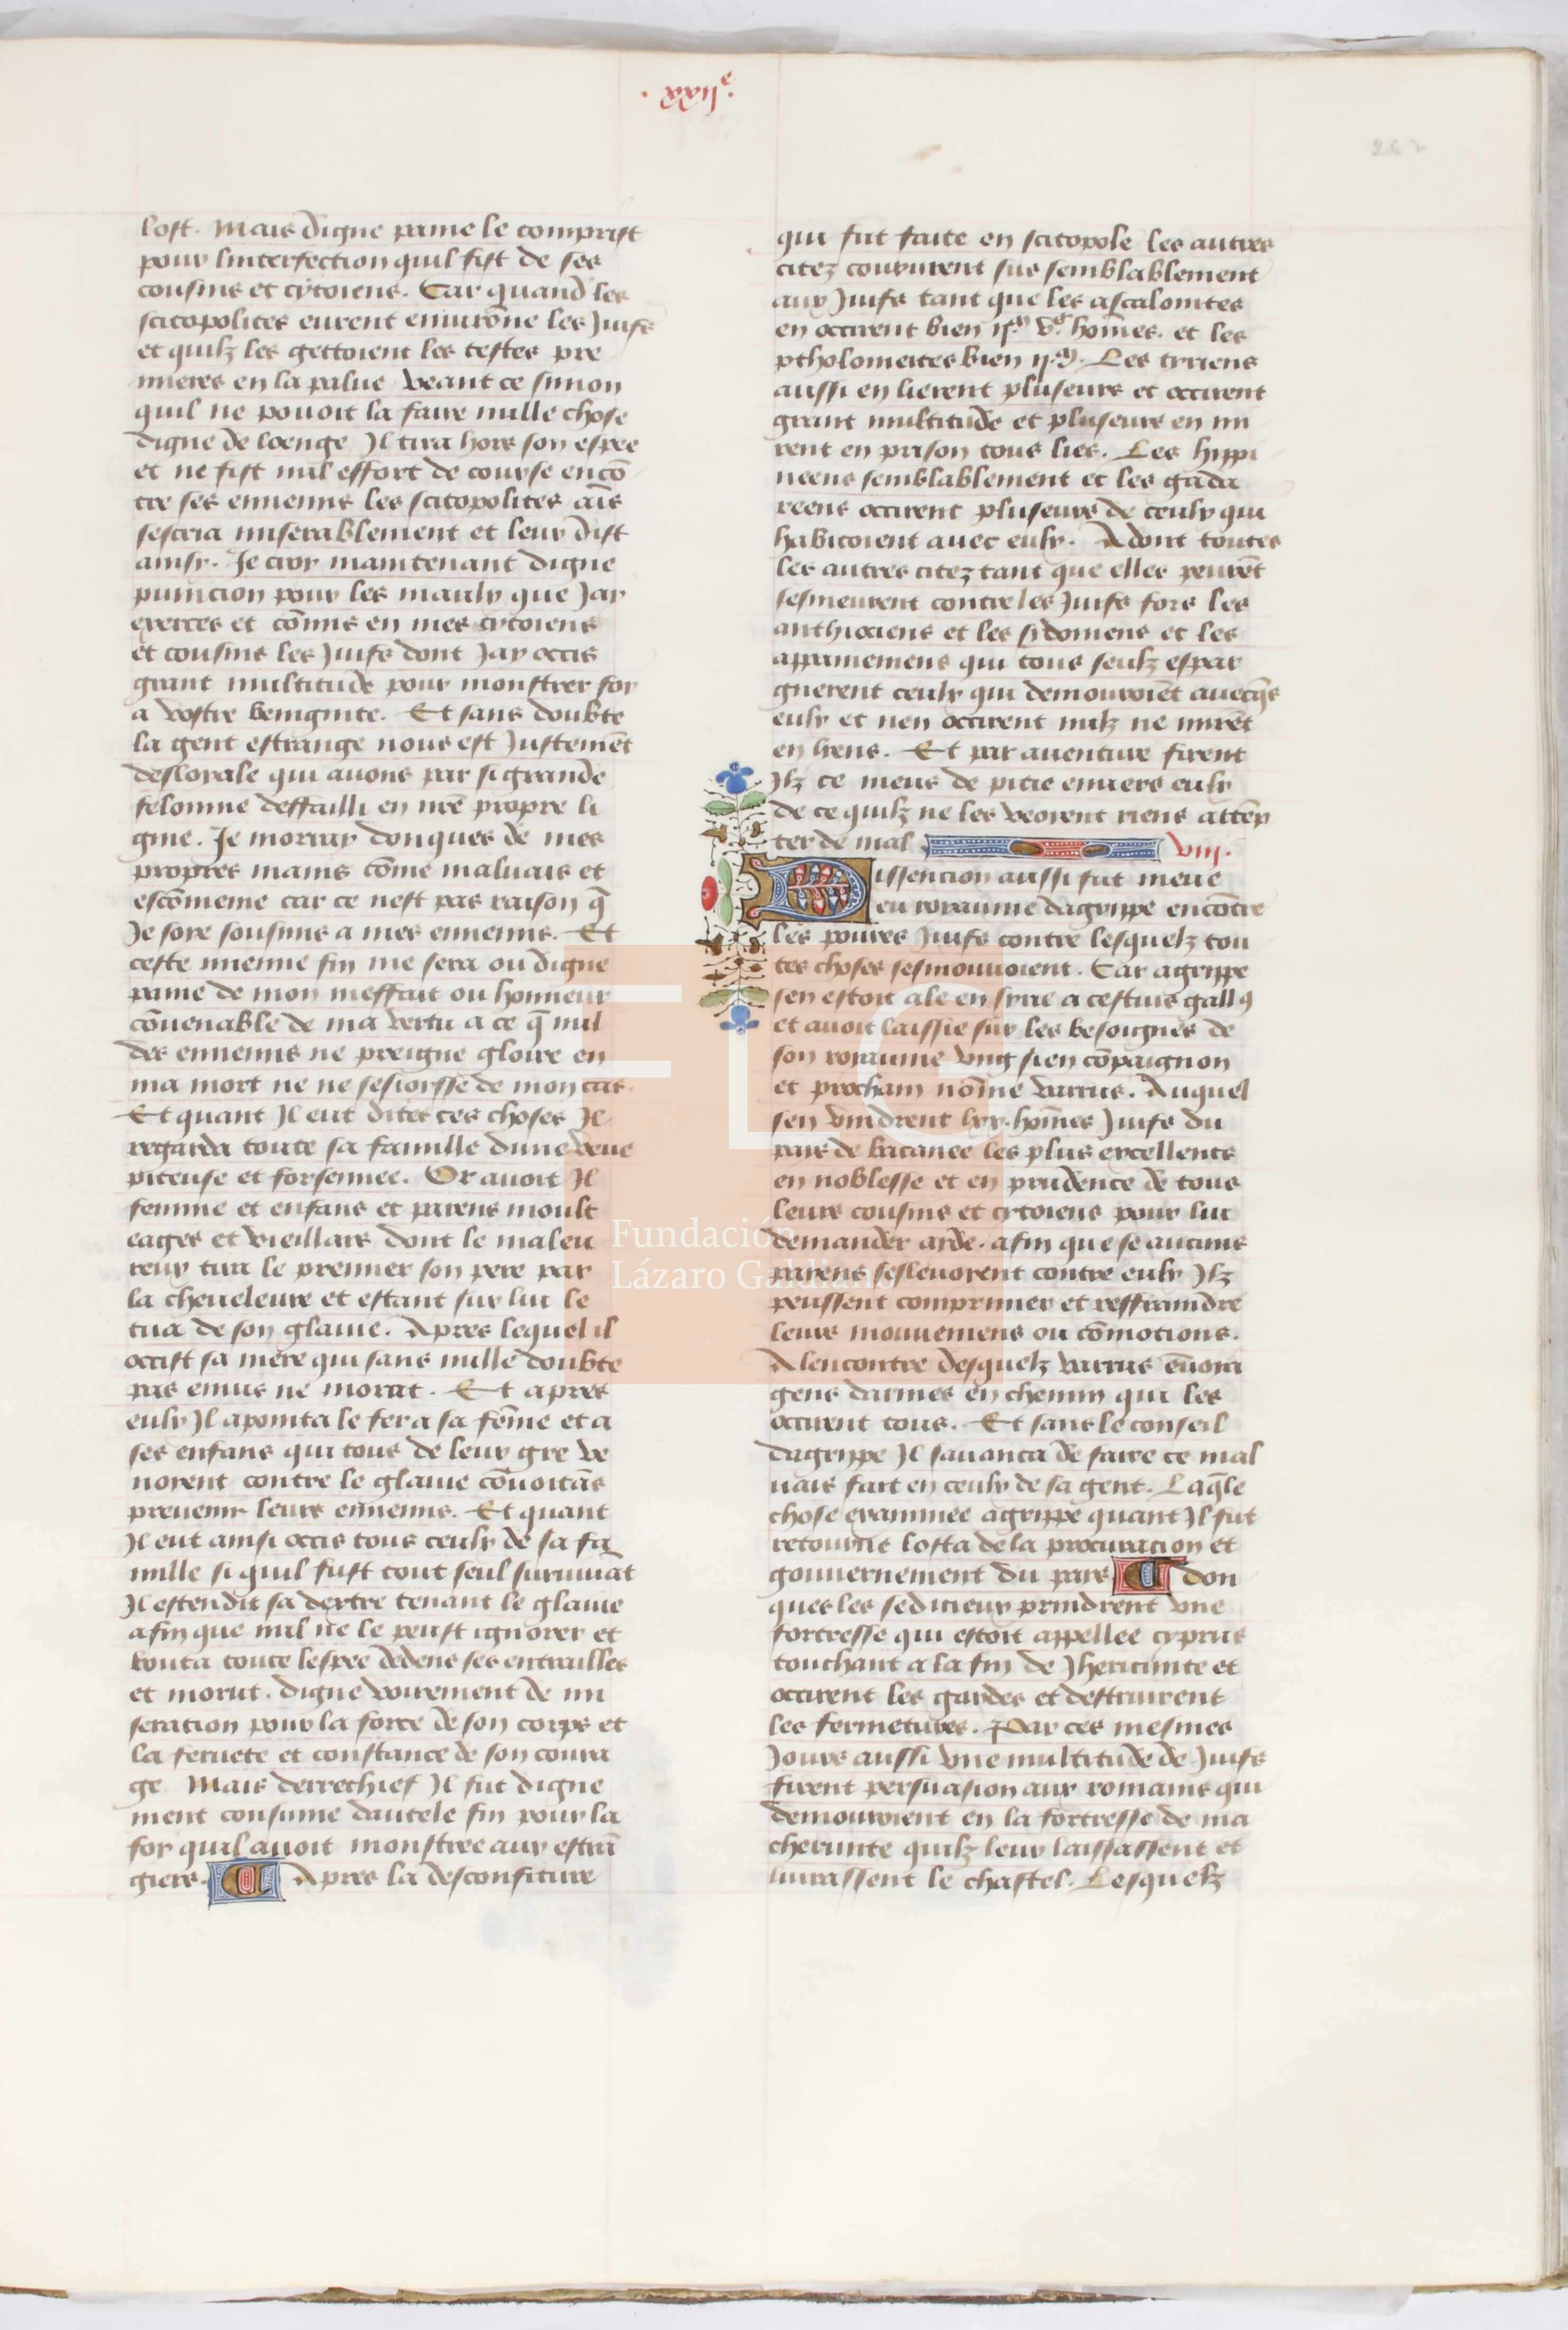 lost. Mais digne paine le comprist
pour linterfection quil fist de ses
cousins et cytoiens. Car quand les
scitopolites eurent enuirõne les Juifs
et quilz les gettoient les testes pre
mieres en la palue veant ce simon
quil ne pouoit la faire nulle chose
digne de loenge Il tira hors son espee
et ne fist nul effort de course encõ
tre ses ennemis les scitopolites aĩs
sescria miserablement et leur dist
ainsy. Je croy maintenant digne
punicion pour les maulx que Jay
exerces et cõmis en mes cytoiens
et cousins les Juifs dont Jay occis
grant multitude pour monstrer foy
a vostre benignite. Et sans doubte
la gent estrange nous est Justemẽt
desloyale qui auons par si grande
felonnie deffailli en nrẽ propre li
gnie. Je morray donques de mes
propres mains cõme maluais et
escõmenie car ce nest pas raison q̃
Je soye sousmis a mes ennemis. Et
ceste mienne fin me sera ou digne
paine de mon meffait ou honneur
cõuenable de ma vertu a ce q̃ nul
des ennemis ne preigne gloire en
ma mort ne ne sesioysse de mon cas.
Et quant Il eut dites ces choses Il
regarda toute sa famille dune veue
piteuse et forsennee. Or auoit Il
femme et enfans et parens moult
eages et vieillars dont le maleu
reux tira le premier son pere par
la cheueleure et estant sur lui le
tua de son glaiue. Apres lequel il
occist sa mere qui sans nulle doubte
pas enuis ne morut. Et apres
eulx Il apointa le fer a sa fẽme et a
ses enfans qui tous de leur gre ve
noient contre le glaiue cõuoitãs
preuenir leurs ennemis. Et quant
Il eut ainsi occis tous ceulx de sa fa
mille si quil fust tout seul suruiuãt
Il estendit sa dextre tenant le glaiue
afin que nul ne le peust ignorer et
bouta toute lespee dedens ses entrailles
et morut. digne voirement de mi
seration pour la force de son corps et
la fermete et constance de son coura
ge Mais derrechief Il fut digne
ment consume dautele fin pour la
foy quil auoit monstree aux estrã
giers. Apres la desconfiture
qui fut faite en scitopole les autres
citez coururent sus semblablement
aux Juifs tant que les ascalonites
en occirent bien ij.ᵐ v.ᶜ hõmes. et les
ptholomeites bien ij.ᵐ. Les tyriens
aussi en lierent pluseurs et occirent
grant multitude et pluseurs en mi
rent en prison tous lies. Les hippi
neens semblablement et les gada
reens occirent pluseurs de ceulx qui
habitoient auec eulx. Adont toutes
les autres citez tant que elles peurẽt
sesmeurent contre les Juifs fors les
anthiociens et les sydoniens et les
appamemens qui tous seulz espar
gnerent ceulx qui demouroiẽt auecq̃s
eulx et nen occirent nulz ne mirẽt
en liens. Et par auenture firent
Ilz ce meus de pitie enuers eulx
de ce quilz ne les veoient riens attẽp
ter de mal viij.
Dissencion aussi fut meue
eu royaume dagrippe encõtre
les poures Juifs contre lesquelz tou
tes choses sesmouuoient. Car agrippe
sen estoit ale en syrie a cestuis gallꝯ
et auoit laissie sur les besoignes de
son royaume vng sien cõpaignon
et prochain nõme varrus. Auquel
sen vindrent lxx. hõmes Juifs du
pais de batanee les plus excellents
en noblesse et en prudence de tous
leurs cousins et cytoiens pour lui
demander ayde. afin que se aucuns
parens seslevoyent contre eulx Ilz
peussent comprimer et reffraindre
leurs mouuemens ou cõmotions.
A lencontre desquelz varrus ẽuoya
gens darmes en chemin qui les
occirent tous. Et sans le conseil
dagrippe Il sauanca de faire ce mal
uais fait en ceulx de sa gent. Laq̃le
chose examinee agrippe quant Il fut
retourne losta de la procuracion et
gouuernement du pais don
ques les sedicieux prindrent vne
fortresse qui estoit appellee cyprus
touchant a la fin de Jhericunte et
occirent les gardes et destruirent
les fermetures. Par ces mesmes
Jours aussi vne multitude de Juifs
firent persuasion aux romains qui
demouroient en la fortresse de ma
cherunte quilz leur laissassent et
liurassent le chastel. Lesquelz
Fundación
Lázaro Galdiano